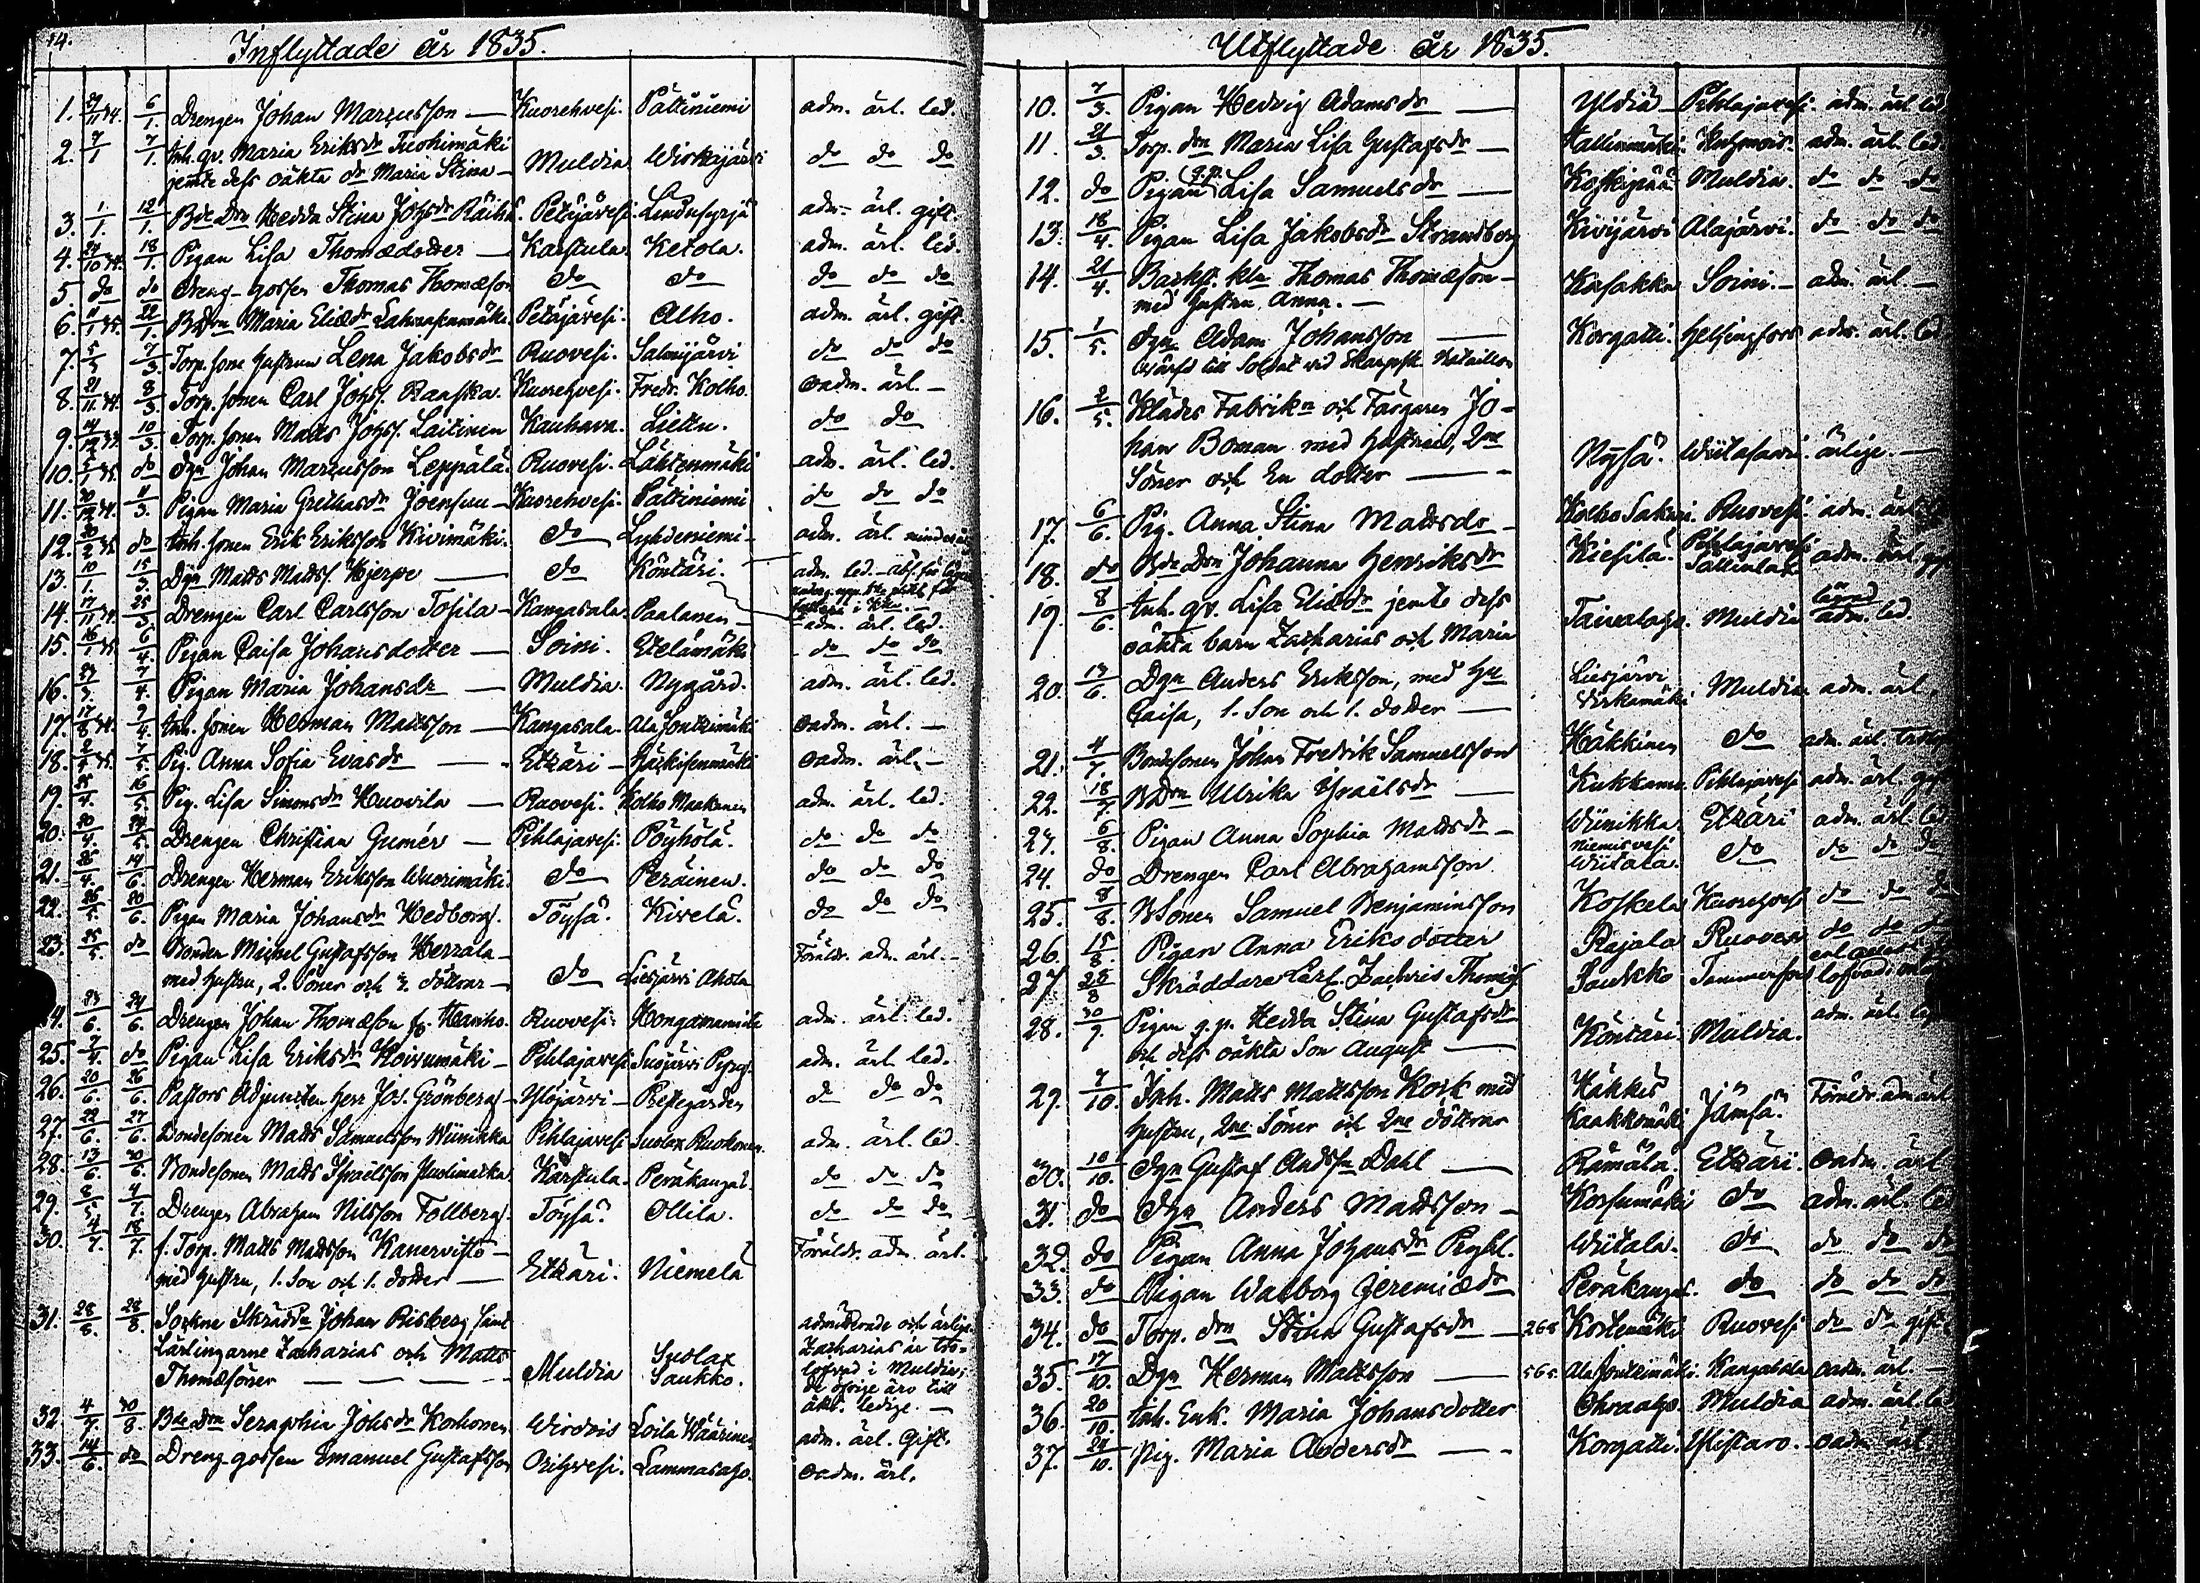 14.
Inflyttade år 1835.
1. 27/11 34. 6/1. Drengen Johan Marcusson — Kuorehvesi. Pättiniemi adm. ärl. led.
2. 7/1 7/1. Inh. qv. Maria Eriksdr Tuohimäki
jemte dess oäkta dr Maria Stina — Muldia Wirkajärvi do do do
3. 1/1. 12/1. Bde Drn Hedda Stina Johsdr Räihä. Petäjävesi. adm. ärl. gift.
4. 27/10 34. 18/1. Pigan Lisa Thomædotter — Karstula. Ketola. adm. ärl. led.
5. do do Dreng-gossen Thomas Thomæson do do do do do
6. 11/1 35. 22/1. BDrn Maria Eliædr Petäjävesi. Alho. adm. ärl. gift.
7. 5/3 7/3. Torp. sons hustrun Lena Jakobsdr Ruovesi. Salmijärvi do do do
8. 21/11 34. 8/3. Torp. sonen Carl Johss. Raaska. Kuorehvesi. Fredr. Kolho. oadm. ärl. —
9. 14/12 33. 10/3. Torp. sonen Matts Johss. Laitinen Kauhava. Liettu. do do
10. 5/1 35. do dgn Johan Marcusson Leppälä. Ruovesi. Lähtenmäki adm. ärl. led.
11. 30/12 34. 11/3. Pigan Maria Grethasdr Joensuu — Kuorehvesi. Pättiniemi do do do
12. 20/2 35. do Inh. sonen Erik Eriksson Kivimäki. do Lyhdeniemi — adm. ärl. minderårig
13. 10/1. 15/3. Dgn Matts Mattss. Hjerpe — do Köntäri. adm. led.
14. 17/11 34. 25/3. Drengen Carl Carlsson Tosila — Kangasala. Paalanen — adm. ärl. led.
15. 16/1 35. 6/4. Pigan Caisa Johansdotter — Soini. Etelämäki do do do
16. 27/3. 7/4. Pigan Maria Johansdr — Muldia. Nygård. adm. ärl. led.
17. 17/8 34. 9/4. Inh. sonen Herman Mattsson — Kangasala. Ala Jontkimäki oadm. ärl. —
18. 2/5 35. 7/5. Pig. Anna Sofia Evasdr — Etzäri — oadm. ärl. —
19. 25/4. 16/5. Pig. Lisa Simonsdr Huovila — Ruovesi. Kolho Maakunen adm. ärl. led.
20. 30/4. 24/5. Drengen Christian Gumér — Pihlajavesi. Pöyhölä. do do do
21. 25/4. 14/6. Drengen Herman Eriksson Wuorimäki. do Peräinen. do do do
22. 26/5. 20/6. Pigan Maria Johansdr Hedborg. Töysä. Kivelä. do do do
23. 25/5. do Bonden Michel Gustafsson Herrala —
med hustru, 2. Söner och 3. döttrar — do Liesjärvi Ahola Föräldr. adm. ärl. —
24. 23/6. 24/6. Drengen Johan Thomæson fr. Hanho. Ruovesi. adm. ärl. led.
25. 2/4. do Pigan Lisa Eriksdr Koivumäki — Pihlajavesi Susijärvi adm. ärl. led.
26. 20/6. 26/6. Pastors Adjuncten herr Jos. Grönberg — Ylöjärvi — Prestegården do do do
27. 22/6. 27/6. Bondesonen Matts Samuelsson Wiinikka Pihlajavesi Suolax Ruokonen. adm. ärl. led.
28. 13/6. 30/6. Bondesonen Matts Israëlsson Karstula. Peräkangas. do do do
29. 8/5. 4/7. Drengen Abraham Nilsson Tollberg. Töysä. Ollila. do do do
30. 4/7. 18/7. f. Torp. Matts Mattsson Kanervisto —
med hustru, 1. Son och 1. dotter — Etzäri. Niemelä Föräldr. adm. ärl.
31. 28/8. 28/8. Sockne Skräddr Johan Risberg samt
Lärlingarne Zacharias och Matts
Thomæsöner — Muldia Suolax Saukko.
admitterade och ärlige
Zacharias är trolofvad i Muldia;
de öfrige äro till äkt. ledige. —
32. 4/7. 30/8. Bde drn Seraphia Johsdr Korhonen Wirdois Loila Wäärinen adm. ärl. Gift.
33. 14/6. do Dreng gossen Emanuel Gustafsson Orihvesi. Lammasaho. oadm. ärl.
Utflyttade år 1835.
10. 7/3. Pigan Hedvig Adamsdr — Yldiä Pihlajavesi. adm. ärl. led
11. 21/3. Torp. drn Maria Lisa Gustafsdr — Kallinmäki. adm. ärl. led.
12. do Pigan q.p. Lisa Samuelsdr — Koskipää Muldia. do do do
13. 18/4. Pigan Lisa Jakobsdr Strandborg Kivijärvi Alajärvi. do do do
14. 21/4. Backst. kln Thomas Thomæson —
med hustru Anna. — Kasakka Soini. — adm. ärl. —
15. 1/5. dgn Adam Johansson — Korgatti. Helsingfors adm. ärl. led
Wärfd till Soldat vid Skarpsk. Bataillon
16. 2/5. Klädes Fabrikn och Färgaren Jo-
han Boman med hustru, 2ne
Söner och En dotter — Nyssä. Wiitasaari. ärlige. —
17. 6/6. Pig. Anna Stina Mattsdr — Kolho Sakari. Ruovesi adm. ärl.
18. do Bde Drn Johanna Henriksdr Kiesilä. Pihlajavesi adm. ärl.
19. 8/6. Inh. qv. Lisa Eliædr jemte dess
oäkta barn Zacharias och Maria Taivalaho. Muldia adm. led.
20. 13/6. Dgn Anders Eriksson, med hu
Caisa, 1. Son och 1. dotter — Liesjärvi Virkamäki Muldia adm. ärl.
21. 4/7. Bondesonen Johan Fredrik Samuelsson Häkkinen do adm. ärl.
22. 18/7. BDrn Ulrika Israëlsdr — Kukkamo. Pihlajavesi adm. ärl.
23. 6/8. Pigan Anna Sophia Mattsdr — Wiinikka. Etzäri adm. ärl. led
24. do Drengen Carl Abrahamsson. Niemisvesi Wiitala. do do do do
25. 8/8. BSonen Samuel Benjaminsson Koskela Kuorehvesi do do do
26. 15/8. Pigan Anna Eriksdotter Rajala Ruovesi do do do
27. 28/8 Skräddare Lärl. Zachris Thomæs. Saukko Tammerfors
28. 30/9. Pigan q.p. Hedda Stina Gustafsdr
och dess oäkta Son August — Köntäri Muldia. adm. ärl.
29. 7/10. Inh. Matts Mattsson Kork med
hustru, 2ne Söner och 2ne döttrar Häkkis Kaakkomäki Jämsä. Föräldr. adm. ärl
30. 10/10. dgn Gustaf Andssn Dahl — Rämälä. Etzäri. oadm. ärl
31. do dgn Anders Mattsson — Korsumäki do adm. ärl. led
32. do Pigan Anna Johansdr Wiitala. do do do do
33. do Pigan Walborg Jeremiædr Peräkangas. do do do do
34. do Torp. drn Stina Gustafsdr — 268 Kostemäki Ruovesi do do gift
35. 17/10. Dgn Herman Mattsson — 565 Ala Jontkimäki. Kangasala oadm. ärl —
36. 20/10. Inh. Enk. Maria Johansdotter Ohraaho. Muldia adm. ärl. led
37. 24/10. Pig. Maria Andersdr — Korgatti. Ylistaro. oadm ärl.